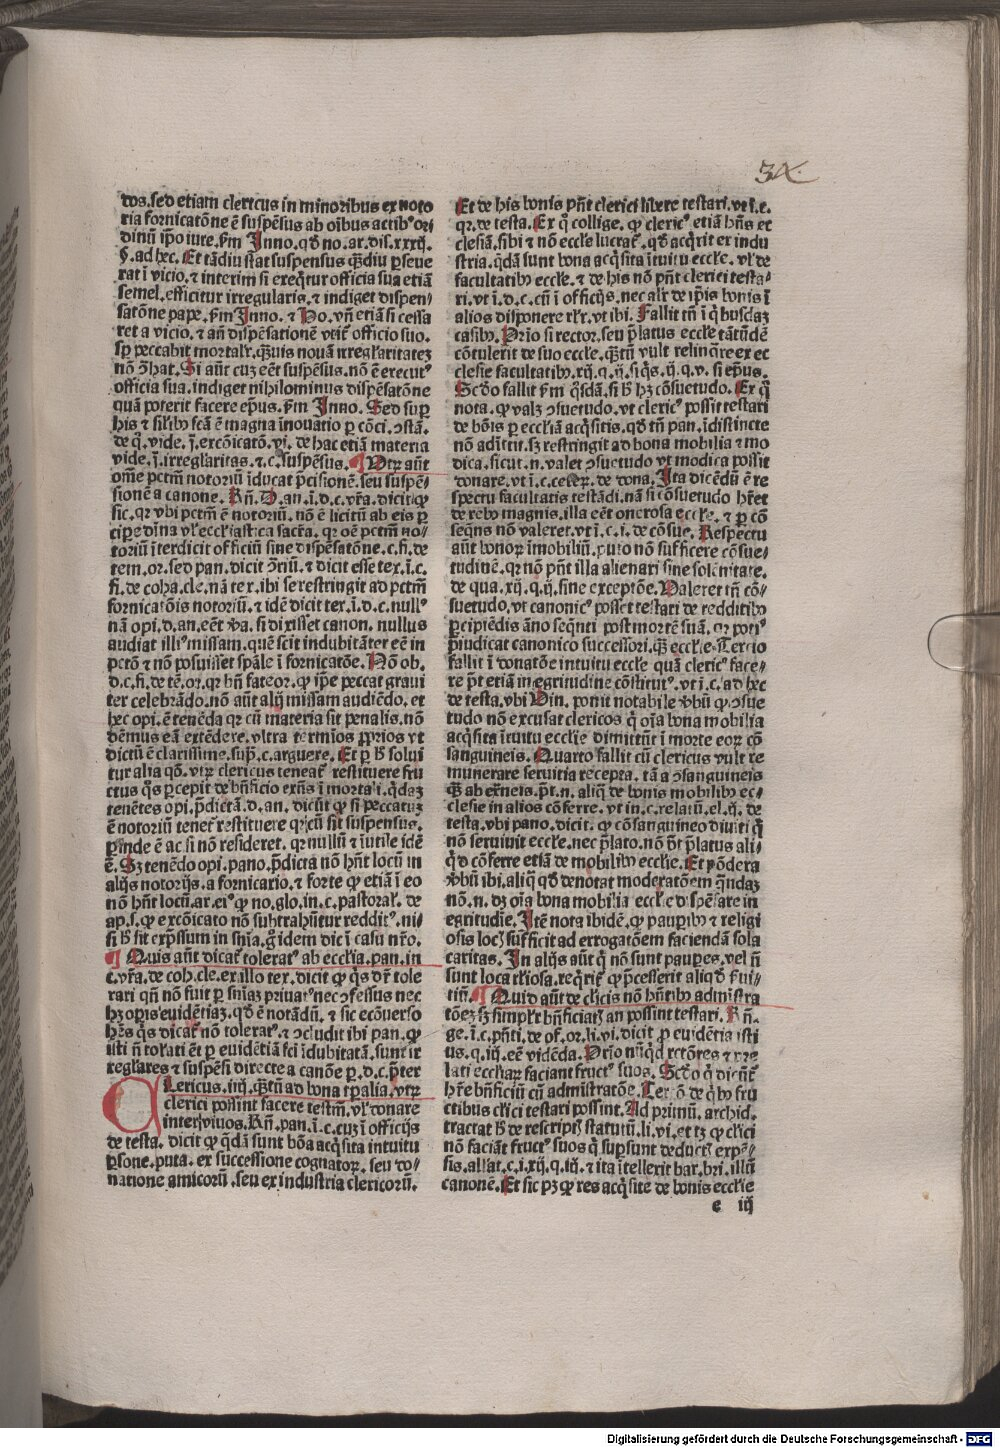 34.
dos. sed etiam clericus in minoribus ex noto
ria fornicatõne ē suspẽsus ab oĩbus actibꝰ ori
dinũ ip̃o iure. ẜm Inno. qð no. ar. dis. xxxij.
§. ad hec. Et tãdiu stat suspensus qᷓdiu ꝑseue
rat ĩ vicio. ⁊ interim si exeqᷓtur officia sua etiã
semel. efficitur irregularis. ⁊ indiget dispen/
satõne pape. ẜm Inno. ⁊ Ho. vñ etiã si cessa
ret a vicio. ⁊ añ dispẽsationẽ vtit᷑ officio suo.
sꝑ peccabit mortalr̃. qᷓuis nouã irregl̃aritatez
nõ ↄ̃hat. Si aũt cuz eẽt suspẽsus. nõ ẽ executꝰ
officia sua. indiget nihilominus dispẽsatõne
quã poterit facere ep̃us. ẜm Inno. Sed suꝑ
his ⁊ sil̃ibꝰ fcã ẽ magna ĩnouatio ꝑ cõci. ↄstã.
de q̃. vide. j̃. excõicatõ. vj. de hac etiã materia
vide. j̃. irregl̃aritas. ⁊. c. suspẽsus. ¶ Vtrꝝ aũt
om̃e pctm̃ notoriũ ĩducat p̃cisionẽ. seu suspẽ/
sionẽ a canone. Rñ. D. an. ĩ. d. c. vr̃a. dicit ꝙ
sic. qꝛ vbi pctm̃ ẽ notoriũ. nõ ẽ licitũ ab eis ꝑ
ciꝑe diĩna vl̃ eccl̃iastica sacr̃a. qꝛ oẽ pctm̃ no/
toriũ ĩterdicit officiũ sine dispẽsatõne. c. fi. de
tem. or. sed pan. dicit ↄ̃riũ. ⁊ dicit esse tex. ĩ. c.
fi. de coha. cle. nã tex. ibi se restringit ad pctm̃
fornicatõis notoriũ. ⁊ idẽ dicit tex. ĩ. d. c. nullꝰ
nã opi. d. an. eẽt v̾a. si dixisset canon. nullus
audiat illiꝰ missam. quẽ scit indubitãter eẽ in
pctõ ⁊ nõ posuisset spãle ĩ fornicatõe. Nõ ob.
d. c. fi. de tẽ. or. qꝛ bñ fateor. ꝙ ip̃e peccat graui
ter celebrãdo. nõ aũt alij missam audiẽdo. et
hec opi. ẽ tenẽda qꝛ cũ materia sit penalis. nõ
dẽmus eã extẽdere. vltra termĩos ꝓprios vt
dictũ ẽ clarissime. supͣ. c. arguere. Et ꝑ ħ solui
tur alia qõ. vtrꝝ clericus teneat᷑ restituere fru
ctus qͦs ꝑcepit de bñficio exñs ĩ mortali. qᷓdaz
tenẽtes opi. p̃dictã. d. an. dicũt ꝙ si peccatuz
ẽ notoriũ tenet᷑ restituere qꝛ cũ sit suspensus.
ꝑinde ẽ ac si nõ resideret. qꝛ nullũ ⁊ ĩutile idẽ
ẽ. Sꝫ tenẽdo opi. pano. p̃dicta nõ hñt locũ in
alijs notorijs. a fornicario. ⁊ forte ꝙ etiã ĩ eo
nõ hñt locũ. ar. eiꝰ ꝙ no. glo. in. c. pastoral̃. de
ap. s. ꝙ excõicato nõ subtrahũtur redditꝰ. ni/
si ħ sit exp̃ssum in sñia. g̃ idem dic ĩ casu nr̃o.
¶ Quis aũt dicat᷑ toleratꝰ ab eccl̃ia. pan. in
c. vr̃a. de coh. cle. ex illo tex. dicit ꝙ qͥs dr̃ tole
rari qñ nõ fuit ꝑ sñiaz priuatꝰ nec ↄfessus nec
hꝫ oꝑis euidẽtiaz. qð ẽ notãdũ. ⁊ sic ecõuerso
hr̃es qͥs dicat᷑ nõ toleratꝰ. ⁊ ↄcludit ibi pan. ꝙ
isti ñ tol̃ati eẽt ꝑ euidẽtiã fci ĩdubitatã. sunt ir
regl̃ares ⁊ suspẽsi directe a canõe ꝑ. d. c. p̃ter
CLericus. iiij. qᷓtũ ad bona tꝑalia. vtrꝝ
clerici possint facere testm̃. vl̃ donare
inter viuos. Rñ. pan. ĩ. c. cuz ĩ officijs
de testa. dicit ꝙ qᷓdã sunt bõa acqͥsita intuitu
ꝑsone. puta. ex successione cognatoꝝ. seu do/
natione amicorũ. seu ex industria clericorũ.
Et de his bonis pñt clerici libere testari. vt ĩ. c.
qꝛ. de testa. Ex qͦ collige. ꝙ clericꝰ etiã hñs ec
clesiã. sibi ⁊ nõ eccl̃e lucrat᷑. qð acqͥrit ex indu
stria. qᷓdã sunt bona acqͥsita ĩtuitu eccl̃e. vl̃ de
facultatibꝰ eccl̃e. ⁊ de his nõ pñt clerici testa/
ri. vt ĩ. d. c. cũ ĩ officijs. nec alr̃ de ip̃is bonis ĩ
alios disponere rl̃r. vt ibi. Fallit tñ ĩ qͥbusdaz
casibꝰ. Prĩo si rector. seu p̃latus eccl̃e tãtũdẽ
cõtulerit de suo eccl̃e. qᷓtũ vult relinq̃re ex ec
clesie facultatibꝰ. xij. q. ij. si qͥs. ij. q. v. si ep̃us.
Scðo fallit ẜm qͦsdã. si ħ hꝫ cõsuetudo. Ex qͦ
nota. ꝙ valꝫ ↄsuetudo. vt clericꝰ possit testari
de bõis ꝑ eccl̃iã acqͥsitis. qð tñ pan. ĩdistincte
nõ admittit. sꝫ restringit ad bona mobilia ⁊ mo
dica. sicut. n. valet ↄsuetudo vt modica possit
donare. vt ĩ. c. ceteꝝ. de dona. Ita dicẽdũ ẽ re
spectu facultatis testãdi. nã si cõsuetudo hr̃et
de rebꝰ magnis. illa eẽt onerosa eccl̃e. ⁊ ꝑ cõ
seq̃ns nõ valeret. vt ĩ. c. j. de cõsue. Respectu
aũt bonoꝝ ĩmobiliũ. puto nõ sufficere cõsue/
tudinẽ. qꝛ nõ pñt illa alienari sine solẽnitate.
de qua. xij. q. ij. sine exceptõe. Valeret tñ cõ/
suetudo. vt canonicꝰ posset testari de redditibꝰ
ꝑcipiẽdis ãno seq̃nti post mortẽ suã. qꝛ potiꝰ
p̃iudicat canonico successori. qᷓ eccl̃ie. Tercio
fallit ĩ donatõe intuitu eccl̃e quã clericꝰ face/
re p̃t etiã in egritudine cõstitutꝰ. vt ĩ. c. ad hec
de testa. vbi Vin. ponit notabile v̾bũ ꝙ ↄsue
tudo nõ excusat clericos qͥ oĩa bona mobilia
acqͥsita ĩtuitu eccl̃ie dimittũt ĩ morte eoꝝ cõ
sanguineis. Quarto fallit cũ clericus vult re
munerare seruitia recepta. tã a ↄsanguineis
qᷓ ab ext̾neis. p̃t. n. aliqͥd de bonis mobilibꝰ ec/
clesie in alios cõferre. vt in. c. relatũ. el. ij. de
testa. vbi pano. dicit. ꝙ cõsanguineo diuiti qͥ
nõ seruiuit eccl̃e. nec p̃lato. nõ dꝫ p̃latus ali/
qͥd cõferre etiã de mobilibꝰ eccl̃ie. Et põdera
v̾bũ ibi. aliqͥd qð denotat moderatõem qᷓndaz
nõ. n. dꝫ oĩa bona mobilia eccl̃e dispẽsare in
egritudĩe. Itẽ nota ibidẽ. ꝙ pauꝑibꝰ ⁊ religi
osis locꝭ sufficit ad errogatõem faciendã sola
caritas. In alijs aũt qͥ nõ sunt pauꝑes. vel ñ
sunt loca rl̃iosa. reqͥrit᷑ ꝙ p̃cesserit aliqð ẜui/
tiũ. ¶ Quid aũt de cl̃icis nõ hñtibꝰ admĩstra
tõez sꝫ simplr̃ bñficiatꝭ an possint testari. Rñ.
ge. ĩ. c. pñti. de of. or. li. vj. dicit ꝓ euidẽtia isti
us. q. iij. eẽ vidẽda. Prĩo nũqͥd rectõres ⁊ pre
lati eccl̃iaꝝ faciant fructꝰ suos. Scðo qͥ dicũt᷑
hr̃e bñficiũ cũ admĩstratõe. Tercõ de qͥbꝰ fru
ctibus cl̃ici testari possint. Ad primũ. archid.
tractat ħ de rescriptꝭ statutũ. li. vj. et tꝫ ꝙ cl̃ici
nõ faciãt fructꝰ suos qͥ suꝑsunt deductꝭ expẽ/
sis. allat. c. j. xij. q. iij. ⁊ ita ĩtellexit bar. bri. illũ
canonẽ. Et sic pꝫ ꝙ res acqͥsite de bonis eccl̃ie
e iij
Digitalisierung gefördert durch die Deutsche Forschungsgemeinschaft - DFG